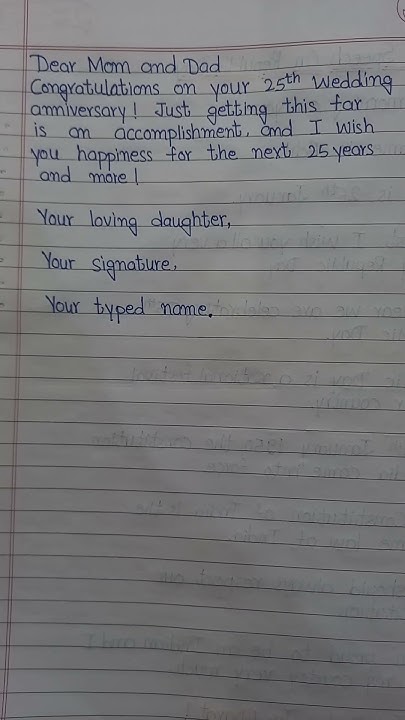 Dear Mom and Dad
Congratulations on your 25th Wedding
anniversary! Just getting this far
is an accomplishment, and I wish
you happiness for the next 25 years
and more!
Your loving daughter,
Your signature,
Your typed name.